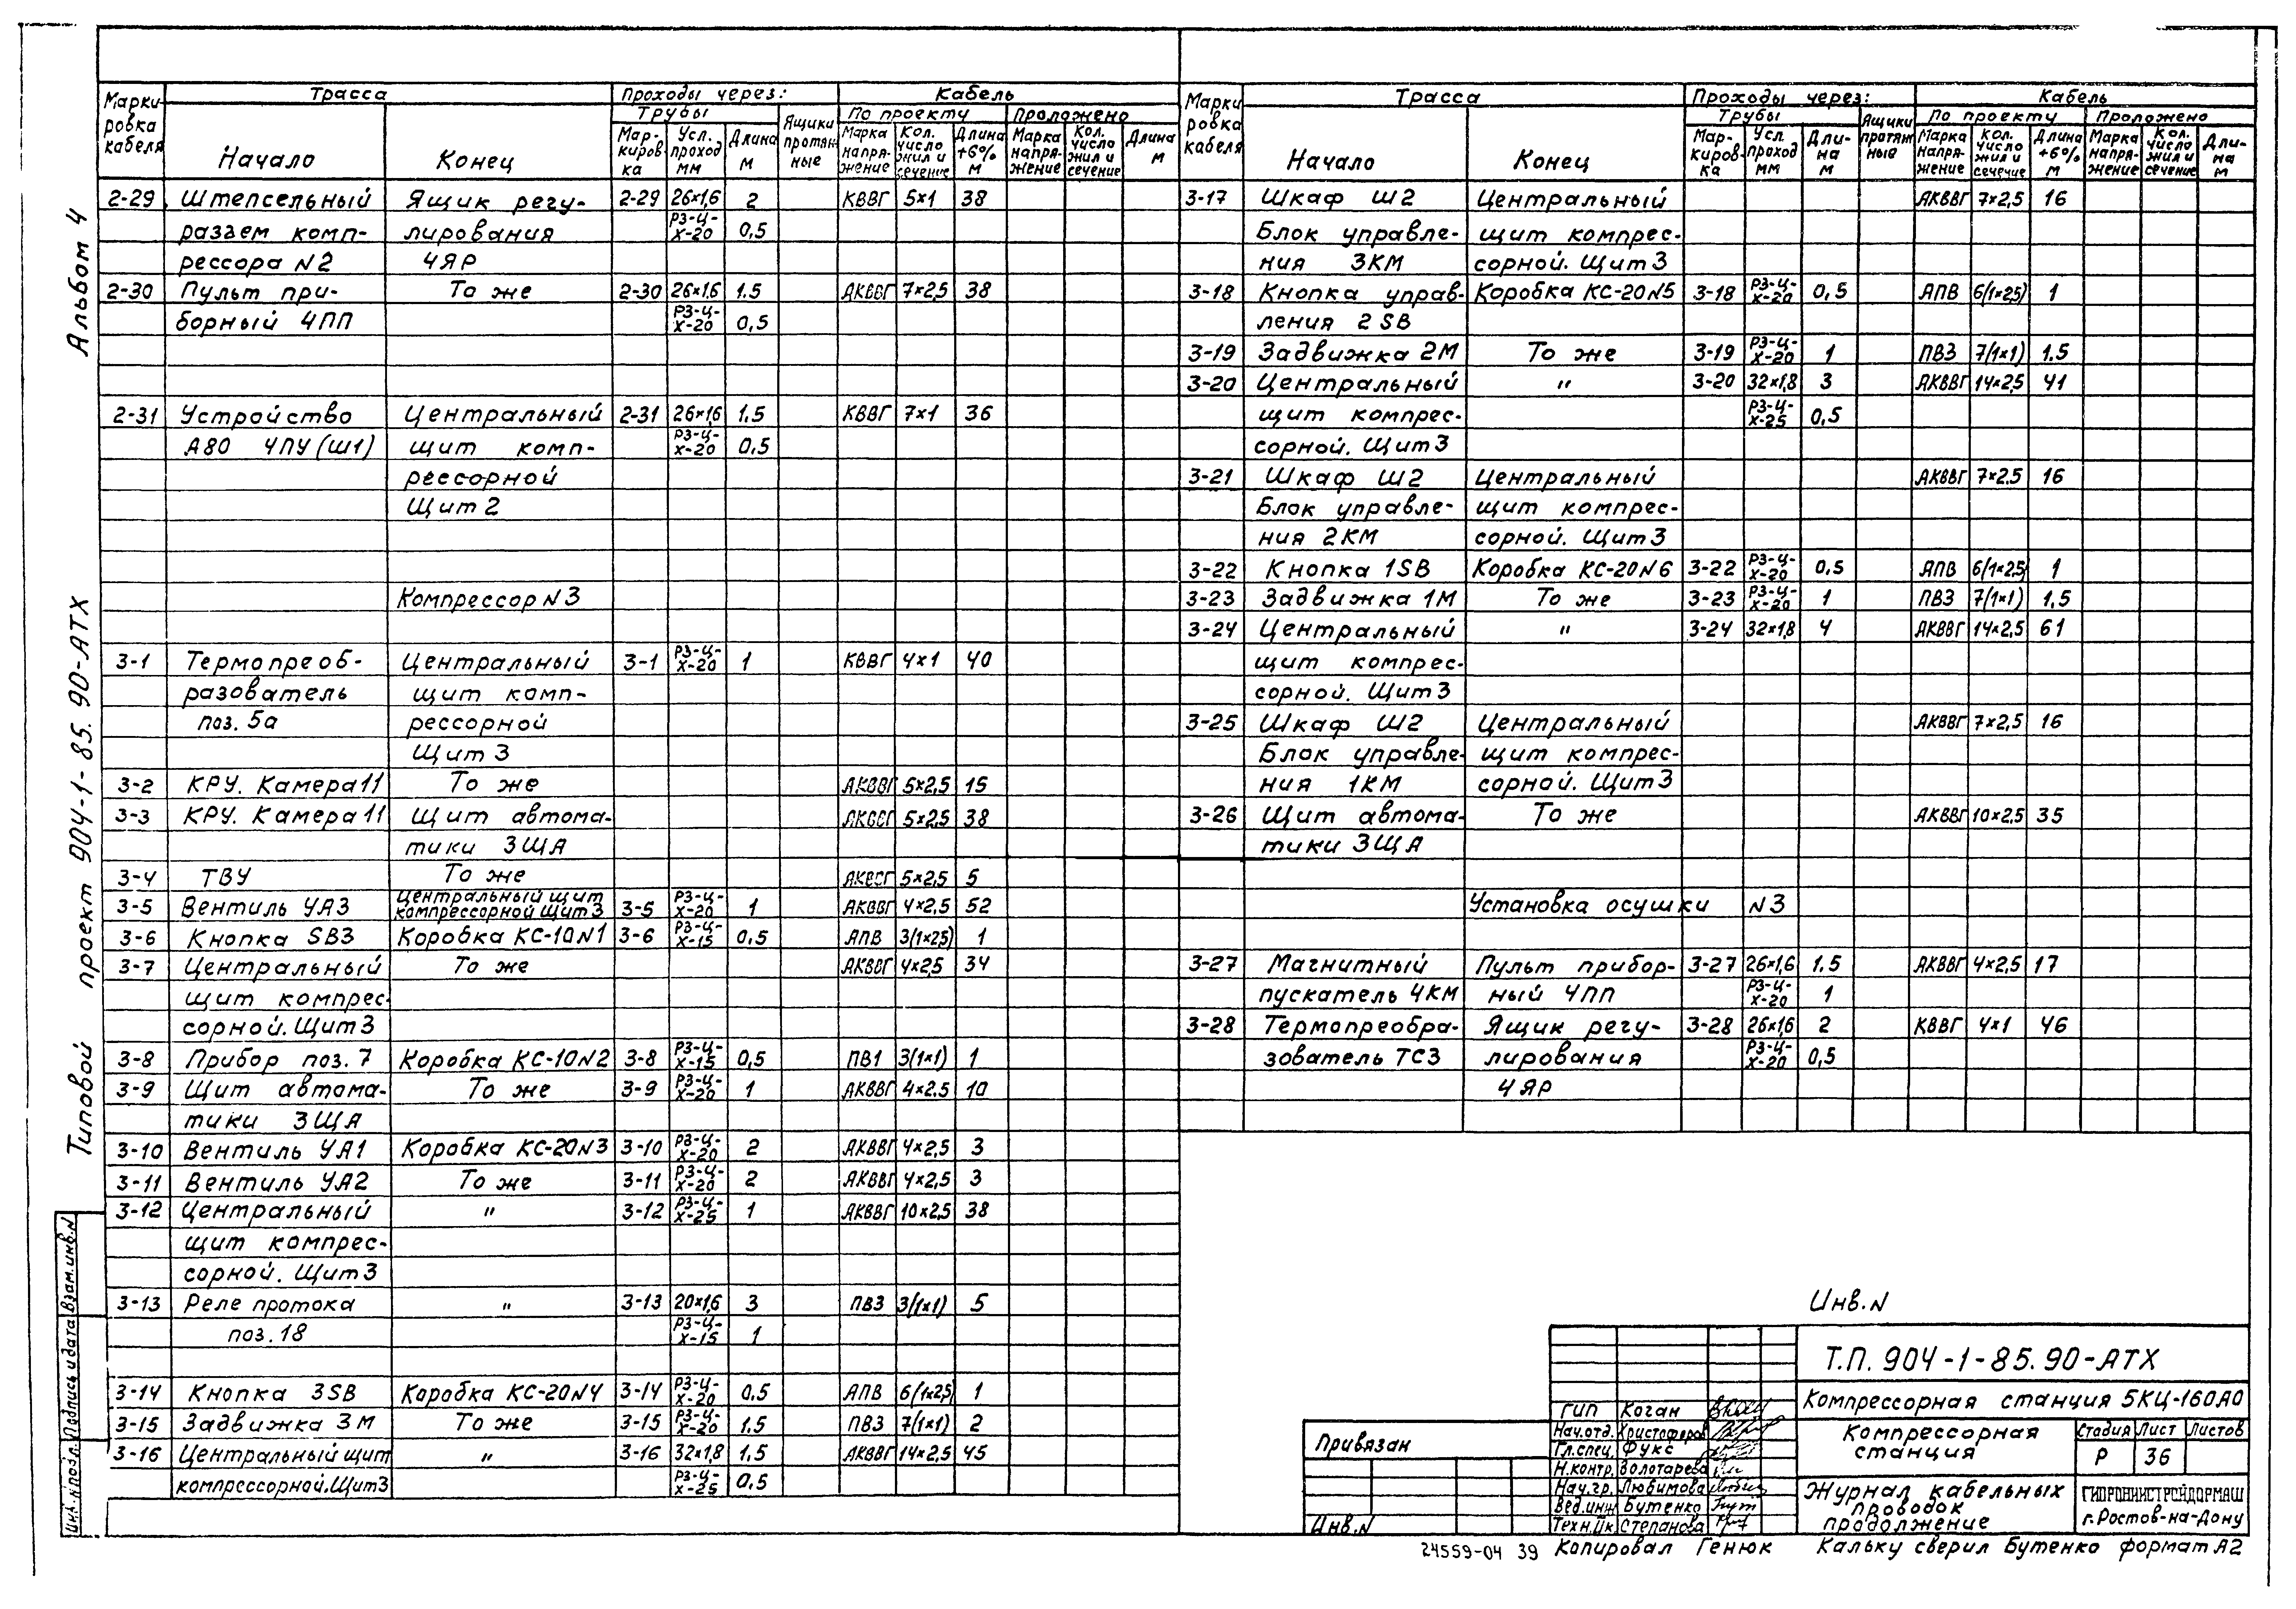 Альбом 4
Типовой проект 904-1-85.90-АТХ
Инв.N подл. Подпись и дата Взам.инв.N
Марки-ровка кабеля Трасса Проходы через: Кабель
Трубы Ящики протяж-ные По проекту Проложено
Начало Конец Мар-киров-ка Усл. проход мм Длина м Марка напря-жение Кол. число жил и сечение Длина +6% м Марка напря-жение Кол. число жил и сечение Длина м
2-29 Штепсельный Ящик регу- 2-29 26×1,6 2 КВВГ 5×1 38
разъем комп- лирования РЗ-Ц-Х-20 0,5
рессора N2 4ЯР
2-30 Пульт при- То же 2-30 26×1,6 1.5 АКВВГ 7×2,5 38
борный 4ПП РЗ-Ц-Х-20 0,5
2-31 Устройство Центральный 2-31 26×1,6 1.5 КВВГ 7×1 36
А80 4ПУ (Ш1) щит комп- РЗ-Ц-Х-20 0,5
рессорной
Щит 2
Компрессор N3
3-1 Термопреоб- Центральный 3-1 РЗ-Ц-Х-20 1 КВВГ 4×1 40
разователь щит комп-
поз. 5а рессорной
Щит 3
3-2 КРУ. Камера 11 То же АКВВГ 5×2,5 15
3-3 КРУ. Камера 11 Щит автома- АКВВГ 5×2,5 38
тики 3ЩА
3-4 ТВУ То же АКВВГ 5×2,5 5
3-5 Вентиль УА3 Центральный щит компрессорной Щит 3 3-5 РЗ-Ц-Х-20 1 АКВВГ 4×2,5 52
3-6 Кнопка SB3 Коробка КС-10N1 3-6 РЗ-Ц-Х-15 0,5 АПВ 3(1×2,5) 1
3-7 Центральный То же АКВВГ 4×2,5 34
щит компрес-
сорной. Щит 3
3-8 Прибор поз. 7 Коробка КС-10N2 3-8 РЗ-Ц-Х-15 0,5 ПВ1 3(1×1) 1
3-9 Щит автома- То же 3-9 РЗ-Ц-Х-20 1 АКВВГ 4×2,5 10
тики 3ЩА
3-10 Вентиль УА1 Коробка КС-20N3 3-10 РЗ-Ц-Х-20 2 АКВВГ 4×2,5 3
3-11 Вентиль УА2 То же 3-11 РЗ-Ц-Х-20 2 АКВВГ 4×2,5 3
3-12 Центральный " 3-12 РЗ-Ц-Х-25 1 АКВВГ 10×2,5 38
щит компрес-
сорной. Щит 3
3-13 Реле протока " 3-13 20×1,6 3 ПВ3 3(1×1) 5
поз. 18 РЗ-Ц-Х-15 1
3-14 Кнопка 3SB Коробка КС-20N4 3-14 РЗ-Ц-Х-20 0.5 АПВ 6(1×2,5) 1
3-15 Задвижка 3М То же 3-15 РЗ-Ц-Х-20 1.5 ПВ3 7(1×1) 2
3-16 Центральный щит " 3-16 32×1,8 1.5 АКВВГ 14×2,5 45
компрессорной. Щит 3 РЗ-Ц-Х-25 0.5
Марки ровка кабеля Трасса Проходы через: Кабель
Трубы Ящики протяж ные По проекту Проложено
Начало Конец Мар-киров-ка Усл. проход мм Дли-на м Марка напря-жение Кол. число жил и сечение Длина +6% м Марка напря-жение Кол. число жил и сечение Дли-на м
3-17 Шкаф Ш2 Центральный АКВВГ 7×2,5 16
Блок управле- щит компрес-
ния 3КМ сорной. Щит 3
3-18 Кнопка управ- Коробка КС-20N5 3-18 РЗ-Ц-Х-20 0,5 АПВ 6(1×2,5) 1
ления 2SB
3-19 Задвижка 2М То же 3-19 РЗ-Ц-Х-20 1 ПВ3 7(1×1) 1.5
3-20 Центральный " 3-20 32×1,8 3 АКВВГ 14×2,5 41
щит компрес- РЗ-Ц-Х-25 0,5
сорной. Щит 3
3-21 Шкаф Ш2 Центральный АКВВГ 7×2,5 16
Блок управле- щит компрес-
ния 2КМ сорной. Щит 3
3-22 Кнопка 1SB Коробка КС-20N6 3-22 РЗ-Ц-Х-20 0,5 АПВ 6(1×2,5) 1
3-23 Задвижка 1М То же 3-23 РЗ-Ц-Х-20 1 ПВ3 7(1×1) 1,5
3-24 Центральный " 3-24 32×1,8 4 АКВВГ 14×2,5 61
щит компрес-
сорной. Щит 3
3-25 Шкаф Ш2 Центральный АКВВГ 7×2,5 16
Блок управле- щит компрес-
ния 1КМ сорной. Щит 3
3-26 Щит автома- То же АКВВГ 10×2,5 35
тики 3ЩА
Установка осушки N3
3-27 Магнитный Пульт прибор- 3-27 26×1,6 1.5 АКВВГ 4×2,5 17
пускатель 4КМ ный 4ПП РЗ-Ц-Х-20 1
3-28 Термопреобра- Ящик регу- 3-28 26×1,6 2 КВВГ 4×1 46
зователь ТС3 лирования РЗ-Ц-Х-20 0,5
4ЯР
Инв.N
Т.П. 904-1-85.90-АТХ
Компрессорная станция 5КЦ-160А0
Привязан
Инв.N
ГИП Коган
Нач.отд. Христофоров
Гл.спец. Фукс
Н.контр. Золотарева
Нач.гр. Любимова
Вед.инж Бутенко
Техн.IIк Степанова
Компрессорная станция
Стадия Лист Листов
Р 36
Журнал кабельных проводок продолжение
ГИПРОНИИСТРОЙДОРМАШ
г.Ростов-на-Дону
24559-04 39 Копировал Генюк Кальку сверил Бутенко формат А2